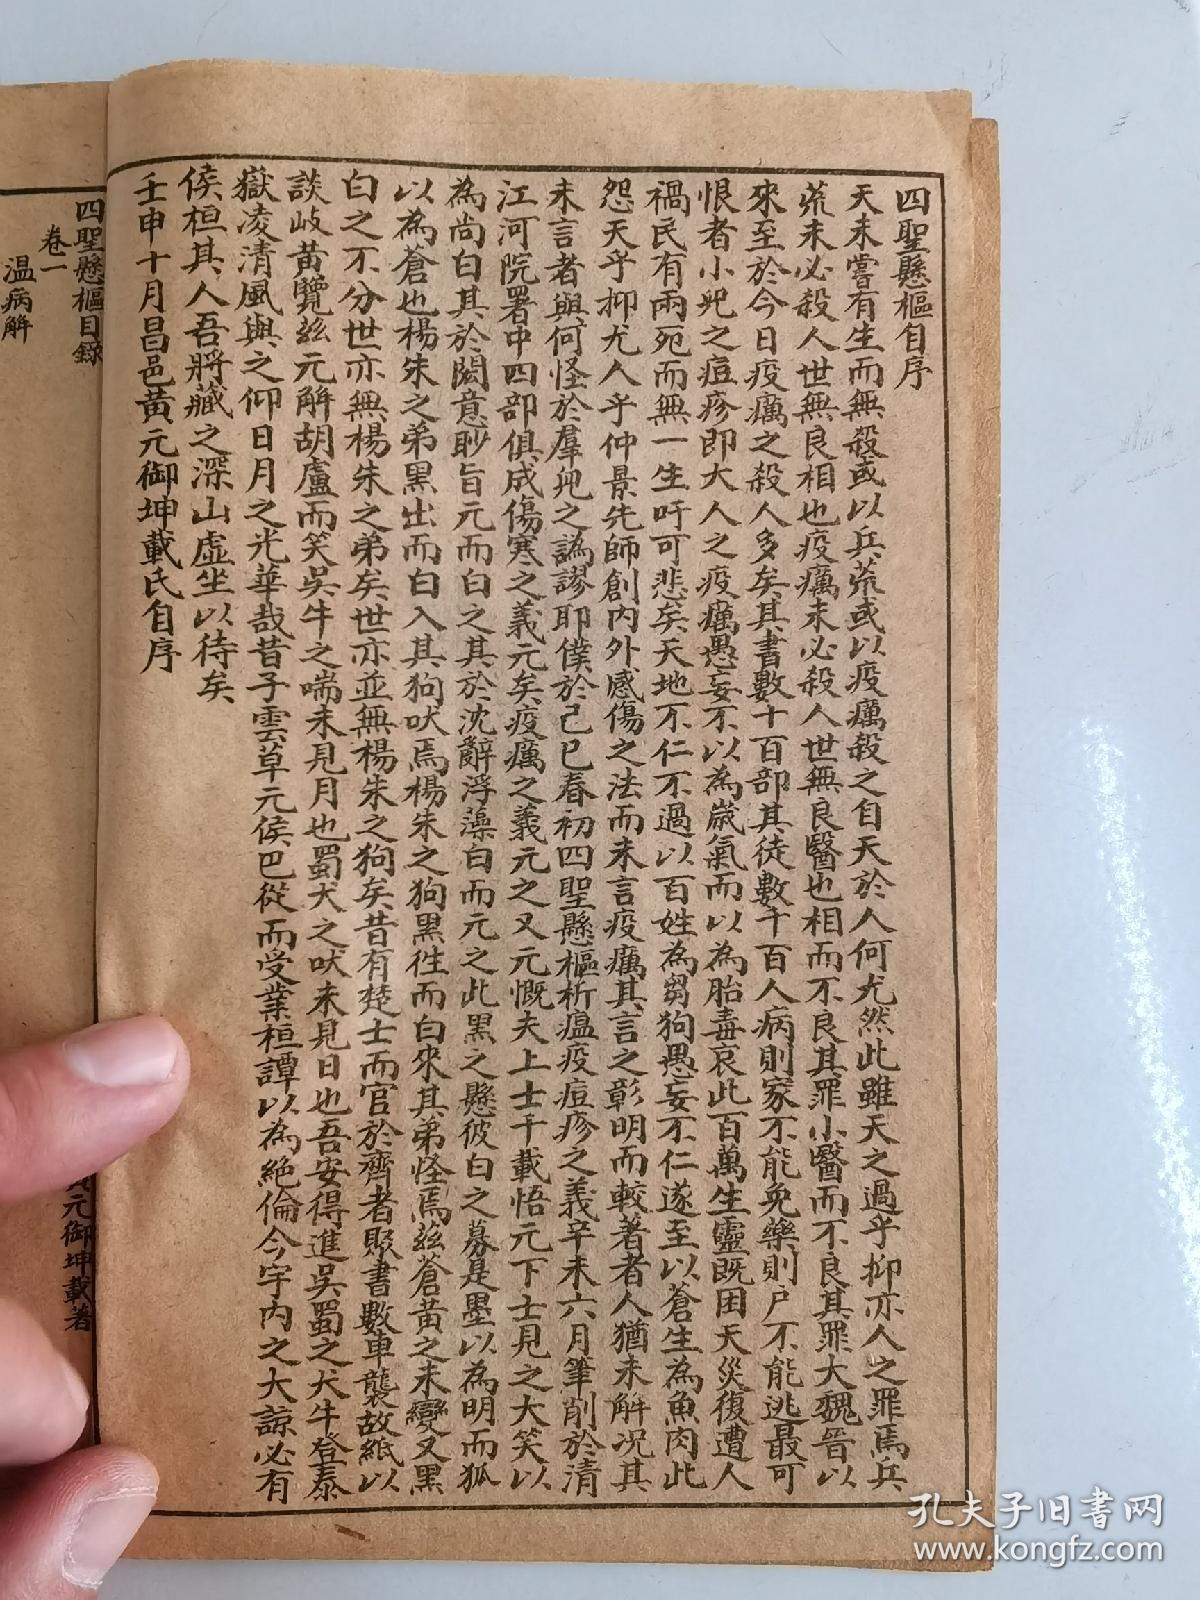 四聖懸樞自序
天未嘗有生而無殺或以兵荒或以疫癘殺之自天於人何尤然此雖天之過乎抑亦人之罪焉兵
荒未必殺人世無良相也疫癘未必殺人世無良醫也相而不良其罪小醫而不良其罪大魏晉以
來至於今日疫癘之殺人多矣其書數十百部其徒數千百人病則家不能免藥則戶不能逃最可
恨者小兒之痘疹即大人之疫癘愚妄不以為歲氣而以為胎毒哀此百萬生靈既困天災復遭人
禍民有兩死而無一生吁可悲矣天地不仁不過以百姓為芻狗愚妄不仁遂至以蒼生為魚肉此
怨天乎抑尤人乎仲景先師創內外感傷之法而未言疫癘其言之彰明而較著者人猶未解况其
未言者與何怪於羣兒之譌謬耶僕於己巳春初四聖懸樞析瘟疫痘疹之義辛未六月筆削於清
江河院署中四部俱成傷寒之義元矣疫癘之義元之又元慨夫上士千載悟元下士見之大笑以
為尚白其於閎意眇旨元而白之其於沈辭浮藻白而元之此黑之懸彼白之募是墨以為明而狐
以為蒼也楊朱之弟黑出而白入其狗吠焉楊朱之狗黑徃而白來其弟怪焉茲蒼黄之未變又黑
白之不分世亦無楊朱之弟矣世亦並無楊朱之狗矣昔有楚士而官於齊者聚書數車襲故紙以
談岐黃覽茲元解胡盧而笑吳牛之喘未見月也蜀犬之吠未見日也吾安得進吳蜀之犬牛登泰
嶽凌清風與之仰日月之光華哉昔子雲草元侯巴從而受業桓譚以為絕倫今宇內之大諒必有
侯桓其人吾將藏之深山虛坐以待矣
壬申十月昌邑黃元御坤載氏自序
四聖懸樞目錄
元御坤載著
卷一
温病解
孔夫子旧书网
www.kongfz.com